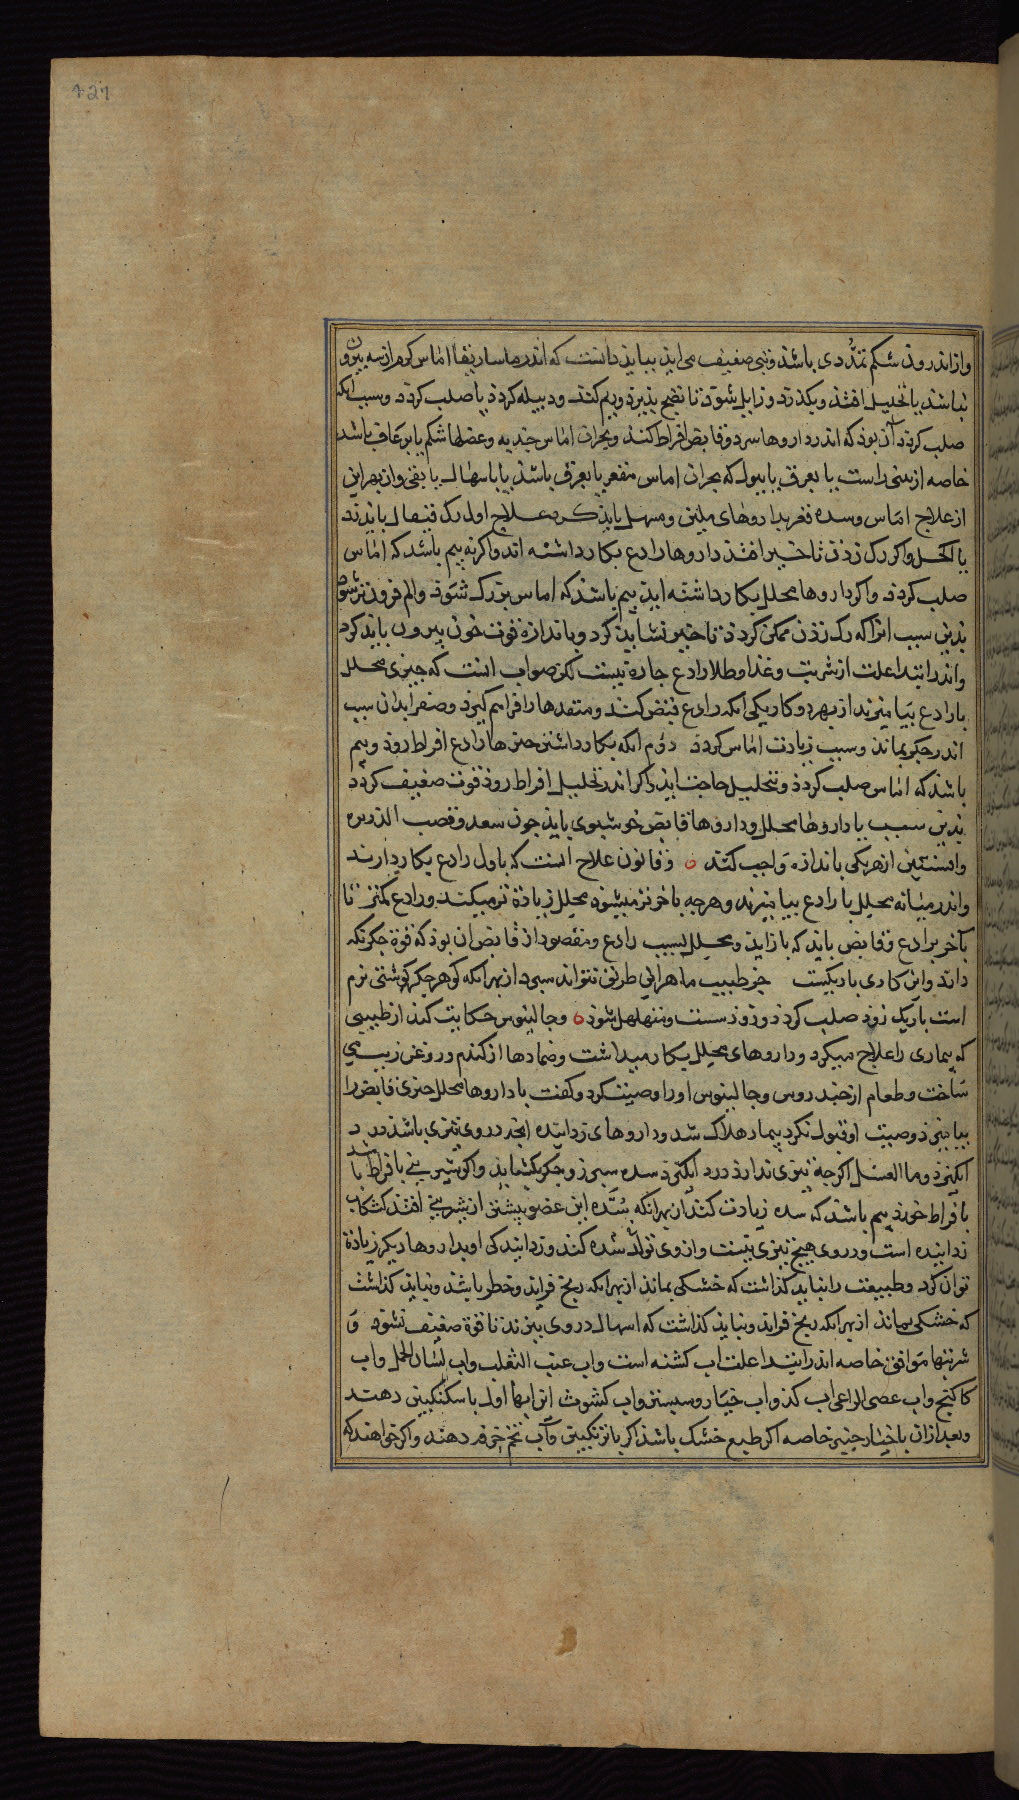 427
واز اندرون شکم تمدّدی باشد و تبی ضعیف می اید بباید دانست که اندر ماساریقا اماس کرم از سه بیرون
نباشد یا تحلیل افتد و بکدرد و زایل شود تا نضج پذیرد و ریم کند و دبیله کردد یا صلب کردد و سبب انکه
صلب کردد آن بود که اندر داروها سرد و قابض افراط کنند و بحران اماس حدبه و عضلها شکم یا برعاف باشد
خاصه از بینی راست یا بعرق یا ببول که بحران اماس مقعر یا بعرق باشد یا باسهال یا بقی و از بهر این
از علاج اماس و سده مقعر بداروهای ملین و مسهل باید کرد علاج اول رک قیفال باید زد
یا اکحل و اکر رک زدن تاخیر افتد داروها رادع بکار داشته اند و اکر نه بیم باشد که اماس
صلب کردد و اکر داروها محلل بکار داشته اید بیم باشد که اماس بزرک شود و الم فزون تر شود
بدین سبب انرا که رک زدن ممکن کردد تاخیر نشاید کرد و باندازه قوت خون بیرون باید کرد
و اندر ابتدا علت از شربت و غذا و طلا رادع چاره نیست لکن صواب انست که چیزی محلل
با رادع بیامیزند از بهر دو کار یکی انکه رادع قبض کند و منفذها را فراهم کیرد و صفرا بدان سبب
اندر جکر بماند و سبب زیادت اماس کردد دوّم انکه بکار داشتن چیزها رادع افراط رود و بیم
باشد که اماس صلب کردد و بتحلیل حاجت اید و اکر اندر تحلیل افراط رود قوت ضعیف کردد
بدین سبب با داروها محلل و داروها قابض خوشبوی باید چون سعد و قصب الذریره
و افسنتین از هر یکی باندازه واجب کنند و قانون علاج انست که باول رادع بکار دارند
و اندر میانه محلل با رادع بیامیزند و هرچه باخر تر میشود محلل زیادة تر میکنند و رادع کمتر تا
بآخر رادع و قابض باید که باز اید و محلل بسبب رادع و مقصود از قابض ان بود که قوة جکر نکه
دارد و این کاری باریکست جز طبیب ماهر این طریق نتواند سپرد از بهر انکه کوهر جکر کوشتی نرم
است باریک زود صلب کردد و زود سست و متهلهل شود و جالینوس حکایت کند از طبیبی
که بیماری را علاج میکرد و داروهای محلل بکار میداشت و ضمادها از کندم و روغن زیت می
ساخت و طعام از خندروس و جالینوس او را وصیت کرد و کفت با داروها محلل چیزی قابض را
بیامیزد وصیت او قبول نکرد بیمار هلاک شد و داروهای زداینده انچه در وی تیزی باشد درد
انکیزد و ما العسل اکر چه تیزی ندارد درد انکیزد سده سبرز و جکر بکشاید و اکر شیرینی بافراط باشد
بافراط خورند بیم باشد که سده زیادت کند از بهر انکه سدّه این عضو بیشتر از شیرینی افتد کشکاب
زداینده است و در وی هیچ تیزی نیست و از وی تولّد سده کند و زدایندکی او بداروها دیکر زیادة
توان کرد و طبیعت را نباید کذاشت که خشکی بماند از بهر انکه رنج فزاید و خطر باشد و نباید کذاشت
که خشکی بماند از بهر انکه رنج فزاید و نباید کذاشت که اسهال در وی بیزند تا قوة ضعیف نشود و
شربتها موافق خاصه اندر ابتدا علت اب کشنه است واب عنب الثعلب واب لسان الحمل واب
کاکنج واب عصی الراعی اب کدو اب خیار و سبستن واب کشوث این ابها اول با سکنکبین دهند
و بعد از ان با خیار چنبر خاصه اکر طبع خشک باشد اکر با ترنکبین وآب تخم خرفه دهند و اکر خواهند که